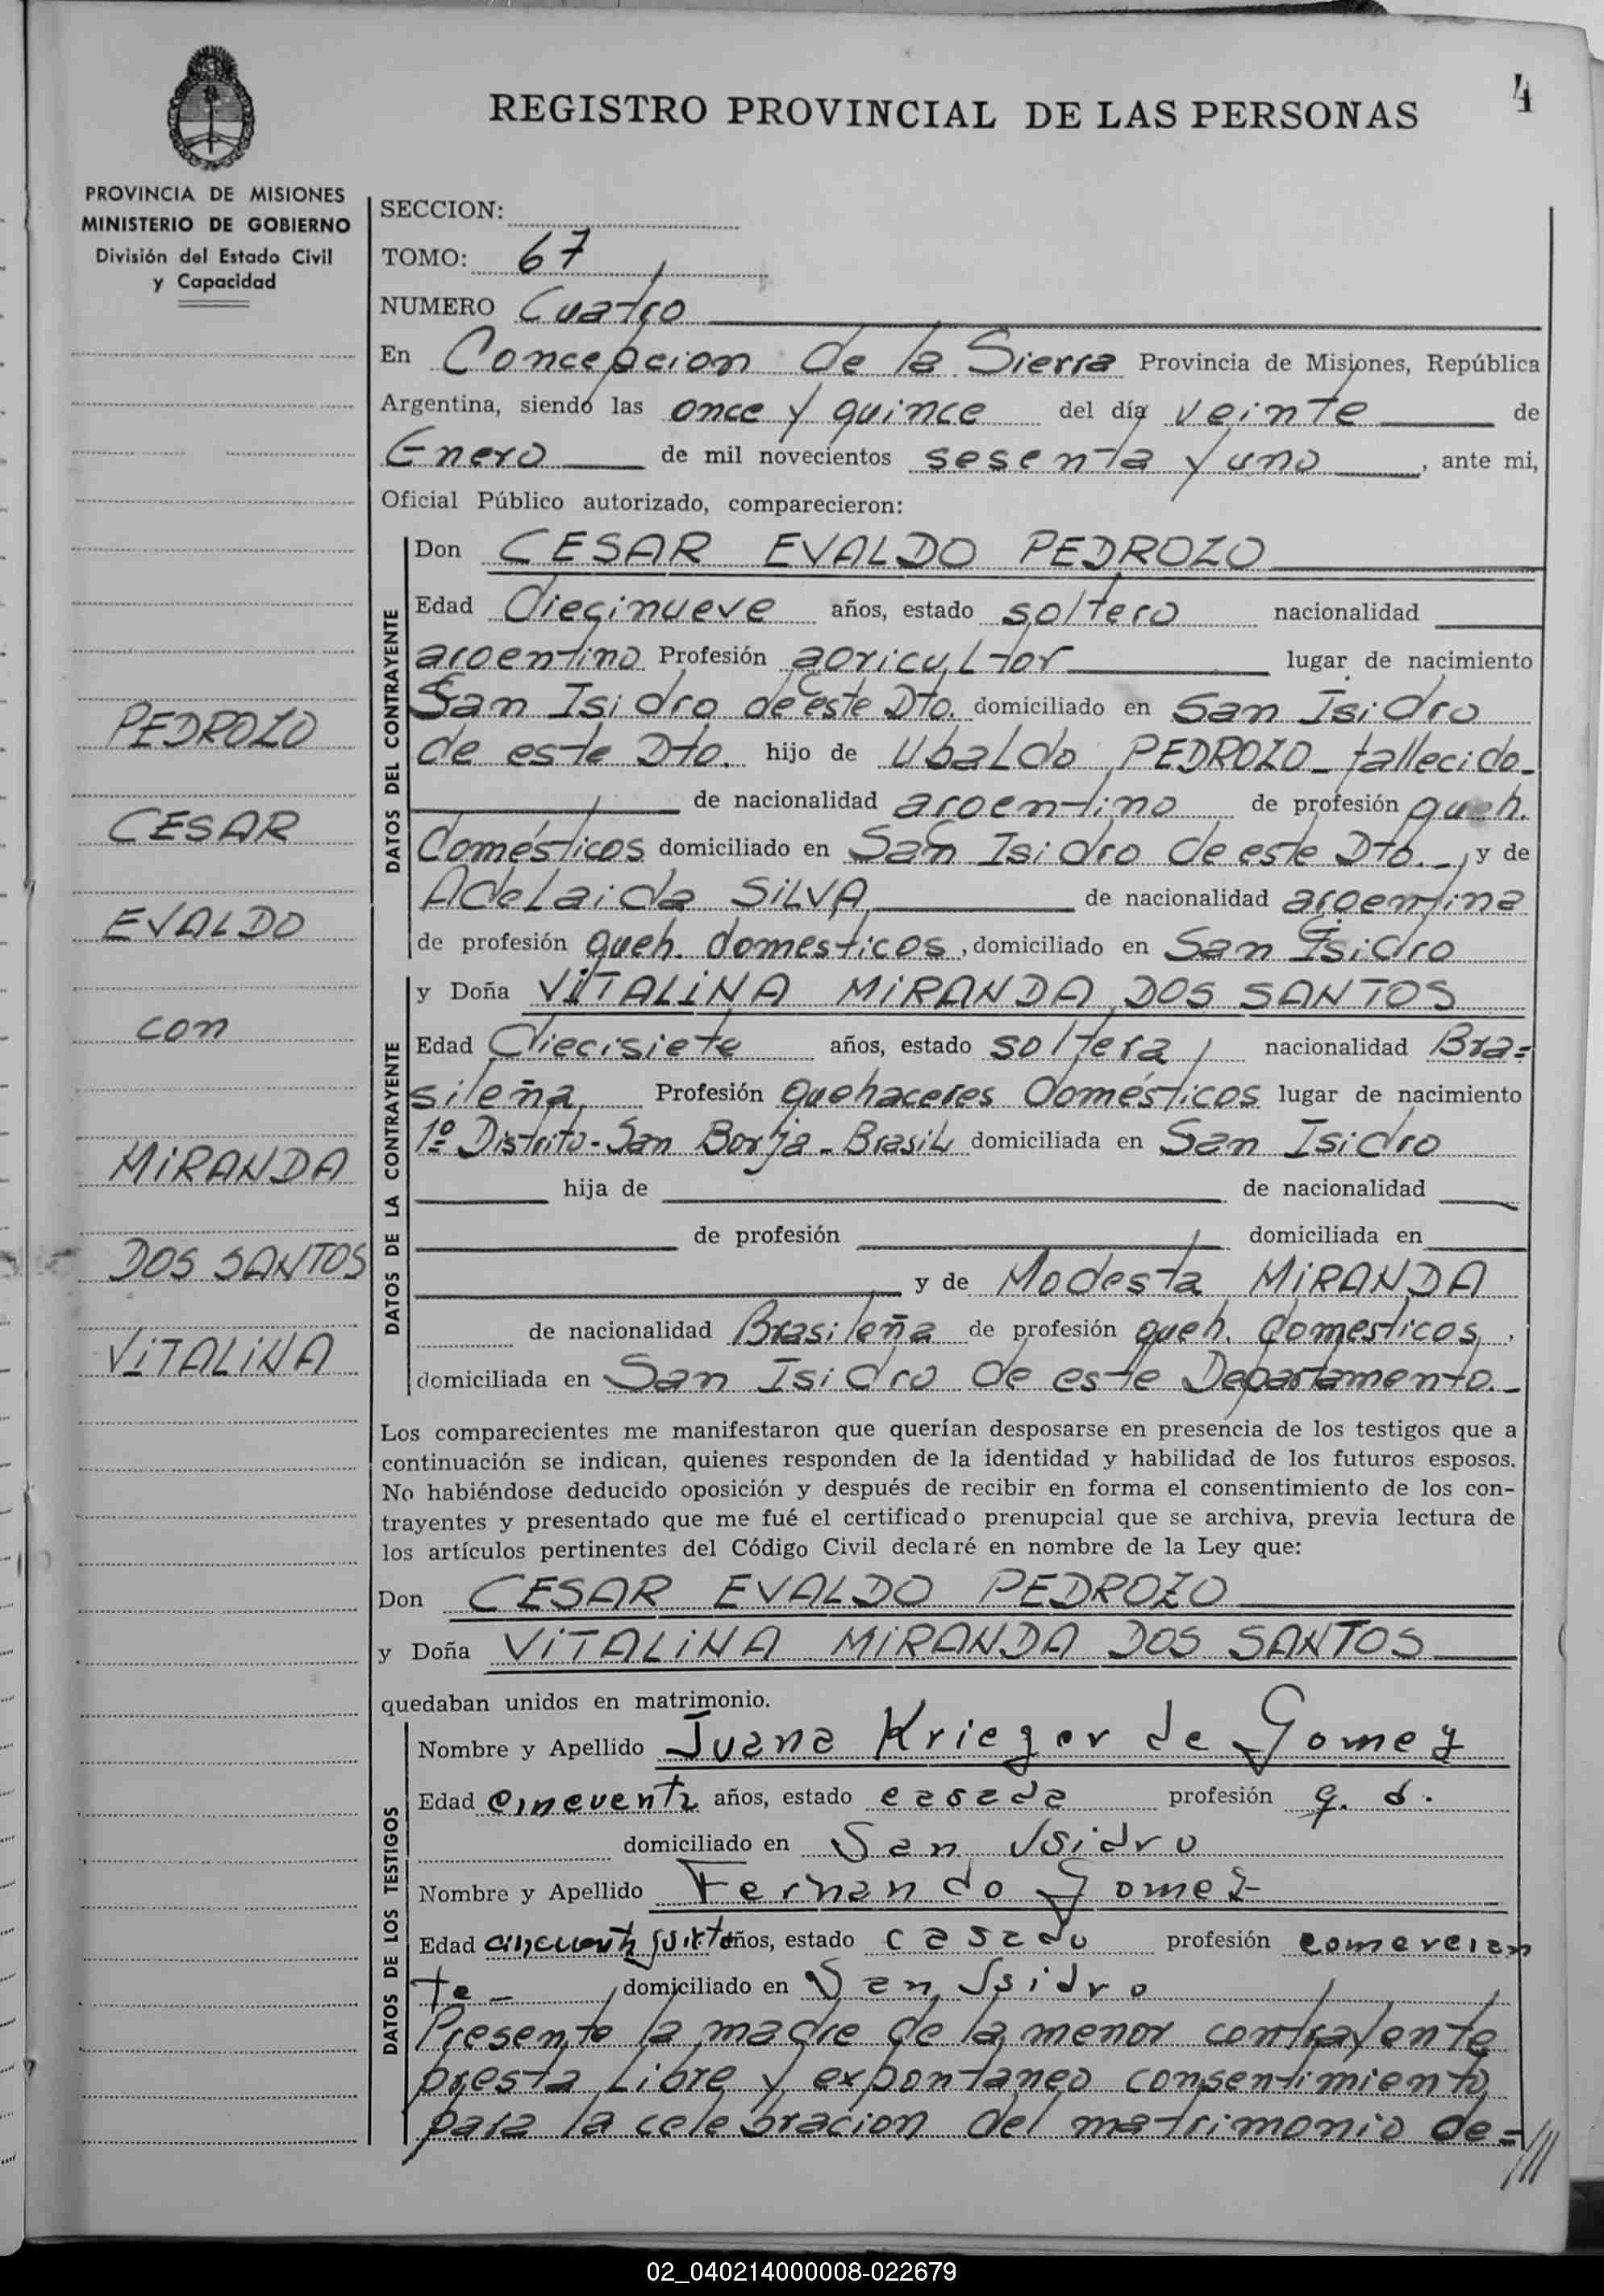 4
REGISTRO PROVINCIAL DE LAS PERSONAS
PROVINCIA DE MISIONES
MINISTERIO DE GOBIERNO
División del Estado Civil
y Capacidad
PEDROZO
CESAR
EVALDO
con
MIRANDA
DOS SANTOS
VITALINA
SECCION:
TOMO: 67
NUMERO Cuatro
En Concepcion de la Sierra Provincia de Misiones, República
Argentina, siendo las once y quince del día veinte de
Enero de mil novecientos sesenta y uno, ante mi,
Oficial Público autorizado, comparecieron:
DATOS DEL CONTRAYENTE
Don CESAR EVALDO PEDROZO
Edad diecinueve años, estado soltero nacionalidad
argentino Profesión agricultor lugar de nacimiento
San Isidro de este Dto. domiciliado en San Isidro
de este Dto. hijo de Ubaldo PEDROZO - fallecido -
de nacionalidad argentino de profesión queh.
domésticos domiciliado en San Isidro de este Dto. -, y de
Adelaida SILVA de nacionalidad argentina
de profesión queh. domesticos, domiciliado en San Isidro
DATOS DE LA CONTRAYENTE
y Doña VITALINA MIRANDA DOS SANTOS
Edad diecisiete años, estado soltera, nacionalidad Bra=
sileña, Profesión quehaceres domésticos lugar de nacimiento
1º Distrito - San Borja - Brasil domiciliada en San Isidro
hija de de nacionalidad
de profesión domiciliada en
y de Modesta MIRANDA
de nacionalidad Brasileña de profesión queh. domesticos,
domiciliada en San Isidro de este Departamento. -
Los comparecientes me manifestaron que querían desposarse en presencia de los testigos que a
continuación se indican, quienes responden de la identidad y habilidad de los futuros esposos.
No habiéndose deducido oposición y después de recibir en forma el consentimiento de los con-
trayentes y presentado que me fué el certificado prenupcial que se archiva, previa lectura de
los artículos pertinentes del Código Civil declaré en nombre de la Ley que:
Don CESAR EVALDO PEDROZO
y Doña VITALINA MIRANDA DOS SANTOS
quedaban unidos en matrimonio.
DATOS DE LOS TESTIGOS
Nombre y Apellido Juana Krieger de Gomez
Edad cincuenta años, estado casada profesión q. d.
domiciliado en San Isidro
Nombre y Apellido Fernando Gomez
Edad cincuenta años, estado casado profesión comercian
te - domiciliado en San Isidro
Presente la madre de la menor contrayente
presta libre y expontaneo consentimiento
para la celebracion del matrimonio de=///
02_040214000008-022679